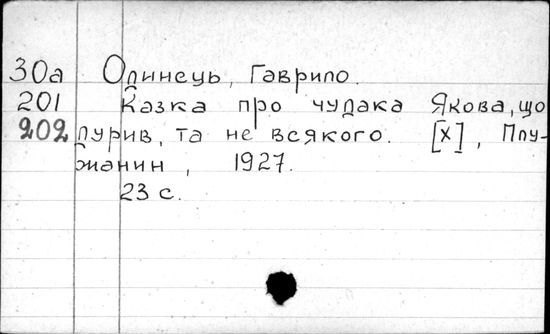 30а Одинець, Гаврило.
201 Казка про чудака Якова, що
202 дурив, та не всякого. [Х], Плу-
жанин, 1927.
23 с.